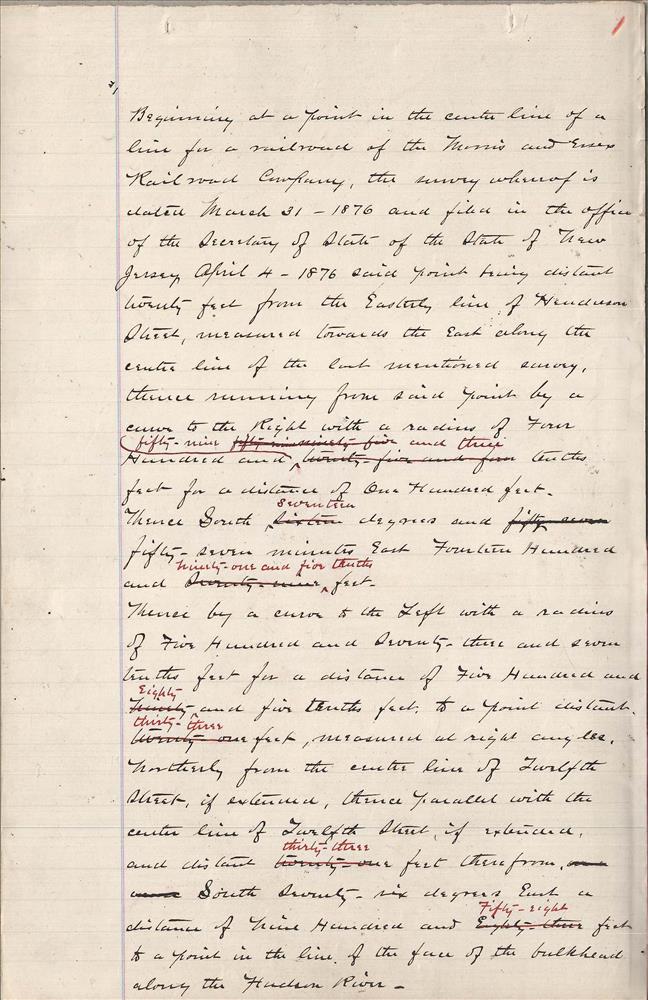 1
Beginning at a point in the centre line of a
line for a railroad of the Morris and Essex
Railroad Company, the survey whereof is
dated March 31 - 1876 and filed in the office
of the Secretary of State of the State of New
Jersey April 4 - 1876 said point being distant
twenty feet from the Easterly line of Henderson
Street, measured towards the East along the
centre line of the last mentioned survey,
thence running from said point by a
curve to the Right with a radius of Four
fifty-nine and three
Hundred and twenty-five and four tenths
feet for a distance of One Hundred feet.
seventeen
Thence South sixteen degrees and fifty-seven
fifty-seven minutes East Fourteen Hundred
ninety-one and five tenths
and Seventy-nine feet.
Thence by a curve to the Left with a radius
of Five Hundred and Seventy-three and seven
tenths feet for a distance of Five Hundred and
Eighty
ninety and five tenths feet, to a point distant
thirty-three
twenty-one feet, measured at right angles,
Northerly from the centre line of Twelfth
Street, if extended, thence parallel with the
center line of Twelfth Street, if extended,
thirty-three
and distant twenty-one feet therefrom,
South Seventy-six degrees East a
Fifty-eight
distance of Nine Hundred and Eighty-three feet
to a point in the line of the face of the bulkhead
along the Hudson River -